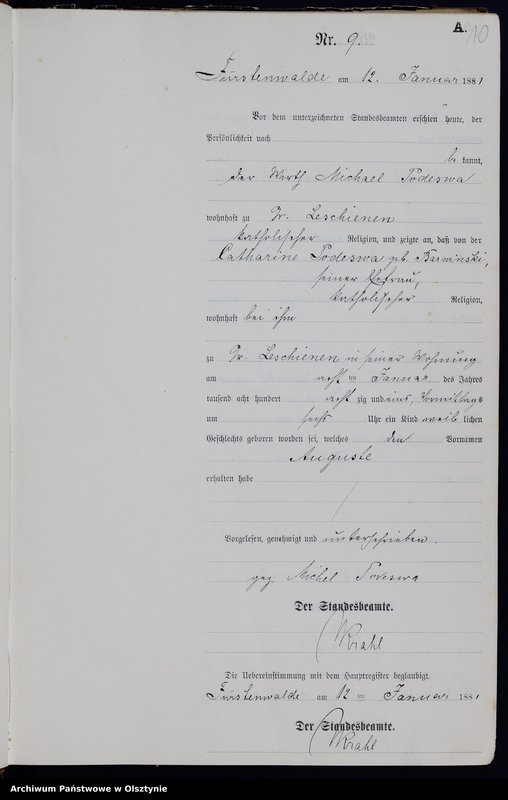 A.
10
Nr. 9.
Fürstenwalde am 12. Januar 1881
Vor dem unterzeichneten Standesbeamten erschien heute, der
Persönlichkeit nach
be kannt,
der Wirth Michael Podeswa
wohnhaft zu Gr. Leschienen
katholischer Religion, und zeigte an, daß von der
Catharine Podeswa geb. Barwinski,
seiner Ehefrau,
katholischer Religion,
wohnhaft bei ihm
zu Gr. Leschienen in seiner Wohnung
am acht ten Januar des Jahres
tausend acht hundert acht zig und eins, Vormittags
um sechs Uhr ein Kind weib lichen
Geschlechts geboren worden sei, welches den Vornamen
Auguste
erhalten habe
Vorgelesen, genehmigt und unterschrieben.
gez. Michel Podeswa
Der Standesbeamte.
Krahl
Die Uebereinstimmung mit dem Hauptregister beglaubigt.
Fürstenwalde am 12 ten Januar 1881
Der Standesbeamte.
Krahl
Archiwum Państwowe w Olsztynie